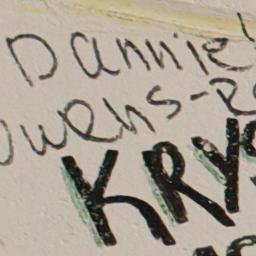 Dannie
Owens-R
KRYS